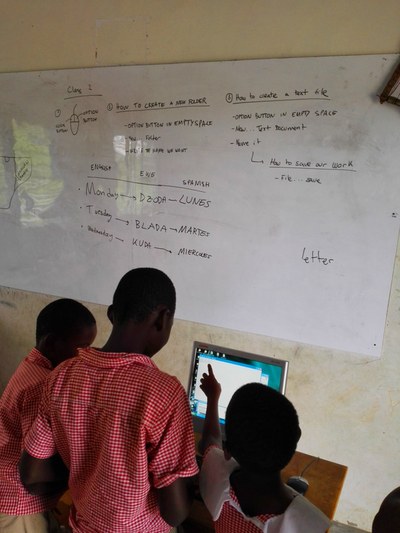 Class 1
① 
OPTION BUTTON
② HOW TO CREATE A NEW FOLDER
- OPTION BUTTON IN EMPTY SPACE
- New Folder
③ How to create a text file
- OPTION BUTTON IN EMPTY SPACE
- New. Text Document
- Name it
How to save our work
- File ... save
ENGLISH EWE SPANISH
Monday DZODA LUNES
Tuesday BLADA MARTES
Wednesday KUDA MIERCOLES
letter